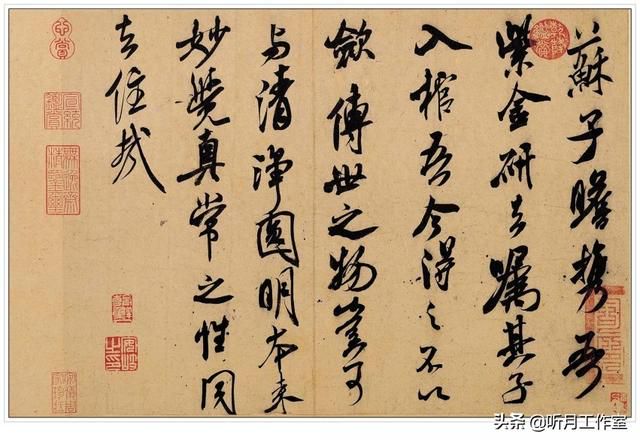 蘇子瞻攜吾
紫金研去囑其子
入棺吾今得之不以
斂傳世之物豈可
与清淨圓明本来
妙覺真常之性同
去住哉
头条 @听月工作室